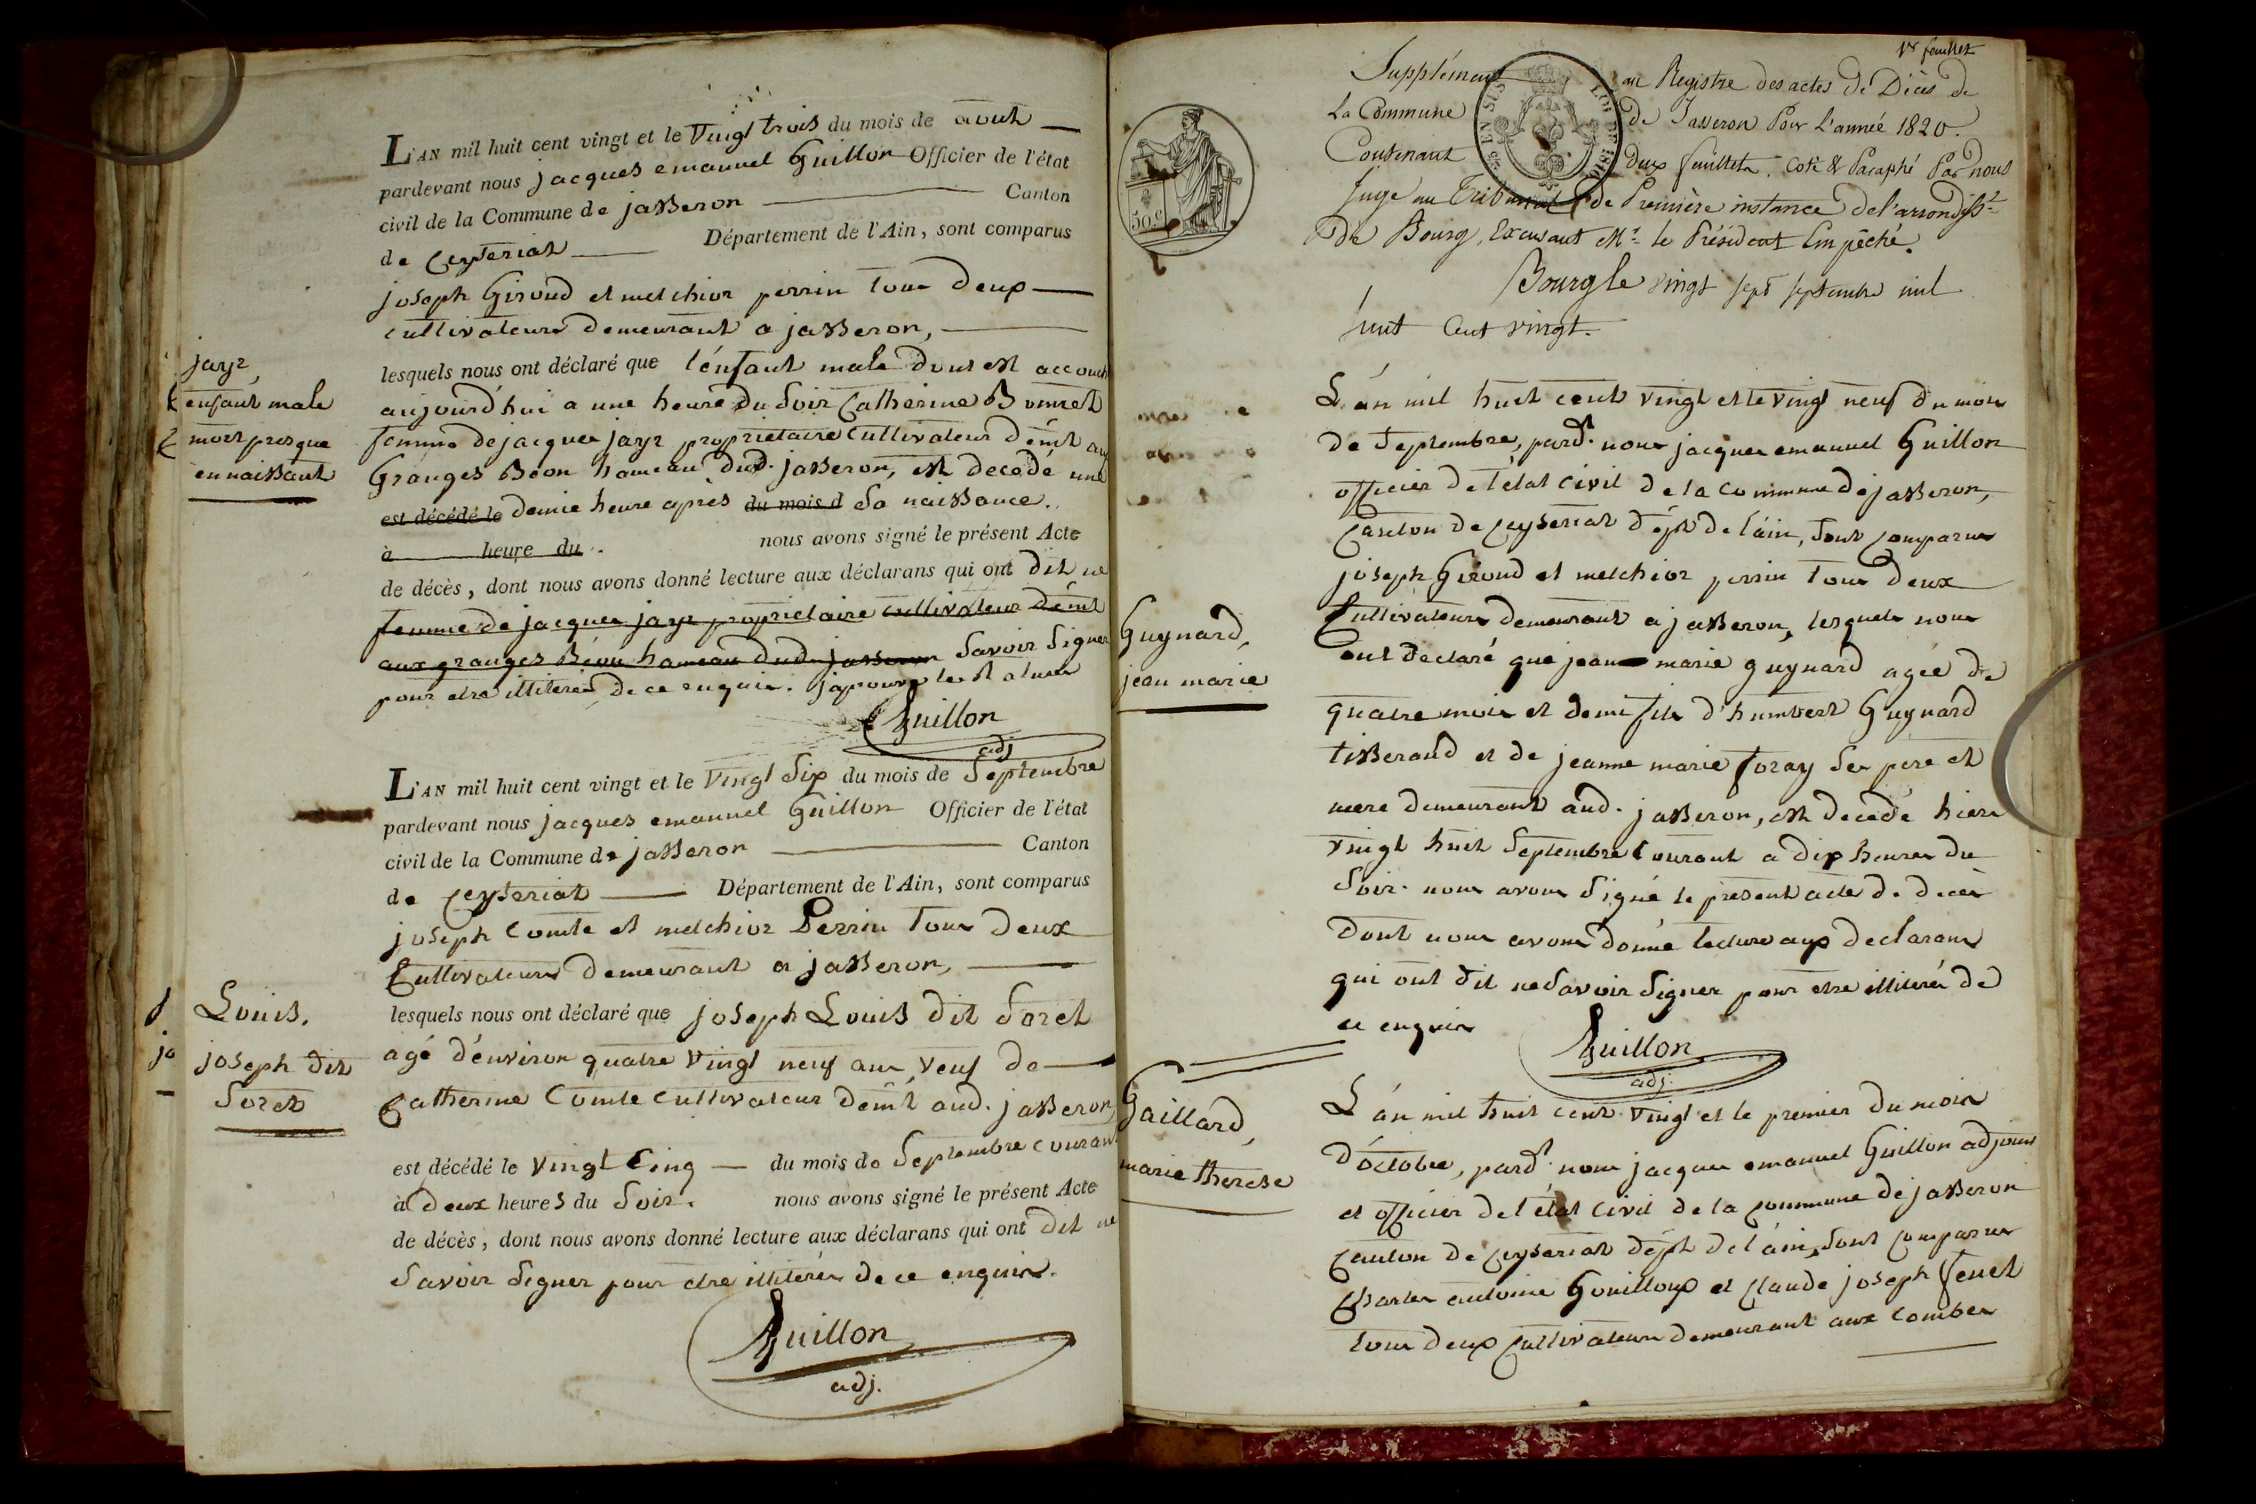 L'AN mil huit cent vingt et le Vingt trois du mois de aout
pardevant nous jacques emanuel Guillon Officier de l'état
civil de la Commune de jasseron Canton
de Ceyseriat Département de l'Ain, sont comparus
joseph Giroud et melchior perrin tous deux
cultivateurs demeurant a jasseron,
lesquels nous ont déclaré que l'énfant male dont est accouch
aujourd'hui a une heure du Soir Catherine
femme de jacques jayr proprietaire Cultivateur démt au
Granges Béon hameau dud. jasseron, est decedé une
est décédé le demie heure après du mois d Sa naissance.
à heure du nous avons signé le présent Acte
de décès, dont nous avons donné lecture aux déclarans qui ont dit ne
femme de jacques jayr proprietaire cultivateur démt
aux granges Béon hameau dud. jasseron Savoir Signer
pour etre illiterés de ce enquis.
Guillon
adj
jayr,
enfant male
mort presque
en naissant
L'AN mil huit cent vingt et le Vingt Six du mois de Septembre
pardevant nous jacques emanuel Guillon Officier de l'état
civil de la Commune de jasseron Canton
de Ceyseriat Département de l'Ain, sont comparus
joseph Comte et melchior Perrin tous deux
Cultivateurs demeurant a jasseron,
lesquels nous ont déclaré que joseph Louis dit Soret
agé d'énviron quatre Vingt neuf ans, Veuf de
Catherine Comte cultivateur démt aud. jasseron,
est décédé le Vingt Cinq du mois de Septembre couran
à deux heures du Soir. nous avons signé le présent Acte
de décès, dont nous avons donné lecture aux déclarans qui ont dit ne
Savoir Signer pour etre illiterés de ce enquis.
Guillon
adj.
Louis,
joseph dit
Soret
1er feuillet
Supplément au Registre des actes de Décès de
La Commune de Jasseron Pour L'année 1820.
Contenant deux feuillets, Coté & Paraphé Par nous
Juge au Tribunal de Première instance de l'arrondisst
De Bourg, Excusant Mr le Président Empêché.
Bourg le vingt sept septembre mil
huit Cent vingt.
50 c
L'án mil huit cent vingt et le Vingt neuf du mois
de Septembre, pardt nous jacques emanuel Guillon
officier de l'état civil de la commune de jasseron,
Canton de Ceyseriat dépt de l'áin, Sont Comparus
joseph Giroud et melchior perrin tous deux
Cultivateurs demeurant a jasseron, lesquels nous
ont declaré que jean marie guynard agée de
quatre mois et demi fils d'humbert Guynard
tisserand et de jeanne marie foray Ses pere et
mere demeurant aud. jasseron, est decedé hiere
vingt huit Septembre Courant a dix heures du
Soir. nous avons Signé le présent acte de decès
Dont nous avons donné lecture aux declarans
qui ont dit ne Savoir Signer pour etre illiterés de
ce enquis
Guillon
adj.
Guynard,
jean marie
L'án mil huit cent vingt et le premier du mois
d'óctobre, pardt nous jacques emanuel Guillon adjoint
et officier de l'état Civil de la Commune de jasseron
Canton de Ceyseriat dépt de l'áin, Sont Comparus
Charles antoine Gouilloux et Claude joseph fenet
tous deux Cultivateurs demeurant aux Combes
Gaillard,
marie therese